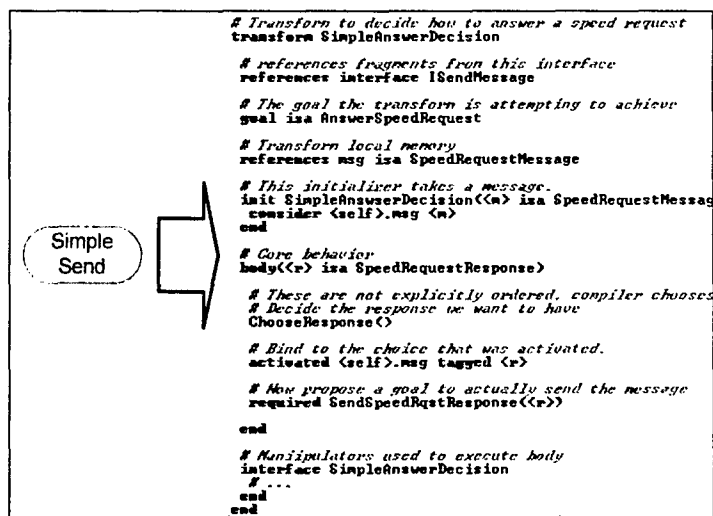 # Transform to decide how to answer a speed request
transform SimpleAnswerDecision
# references fragments from this interface
references interface ISendMessage
# The goal the transform is attempting to achieve
goal isa AnswerSpeedRequest
# Transform local memory
references msg isa SpeedRequestMessage
# This initializer takes a message.
init SimpleAnswserDecision(<m> isa SpeedRequestMessag
consider <self>.msg <m>
end
Simple
Send
# Core behavior
body(<r> isa SpeedRequestResponse)
# These are not explicitly ordered, compiler chooses
# Decide the response we want to have
ChooseResponse()
# Bind to the choice that was activated.
activated <self>.msg tagged <r>
# Now propose a goal to actually send the message
required SendSpeedRqstResponse(<r>)
end
# Maniipulators used to execute body
interface SimpleAnswerDecision
# ...
end
end